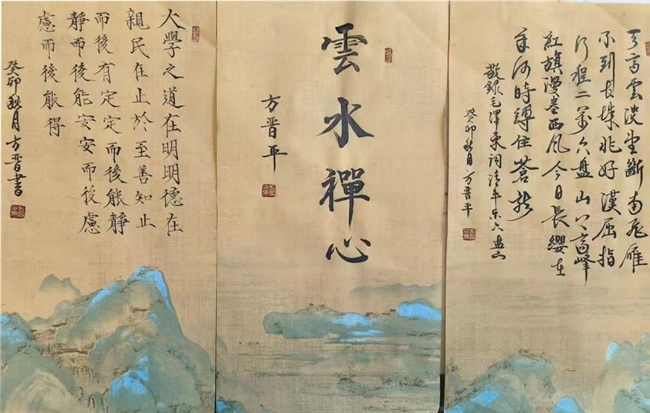 大學之道在明明德在
親民在止於至善知止
而後有定定而後能靜
靜而後能安安而後慮
慮而後能得
癸卯秋月方晉書
雲水禪心
方晉平
天高雲淡望斷南飛雁
不到長城非好漢屈指
行程二萬六盤山上高峰
紅旗漫卷西風今日長纓在
手何時縛住蒼龍
敬錄毛澤東詞清平樂六盤山
癸卯秋月方晉平